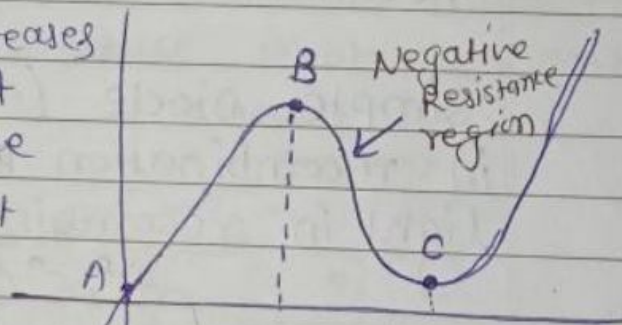 eases
t
e
t
B
Negative
Resistance
region
A
C